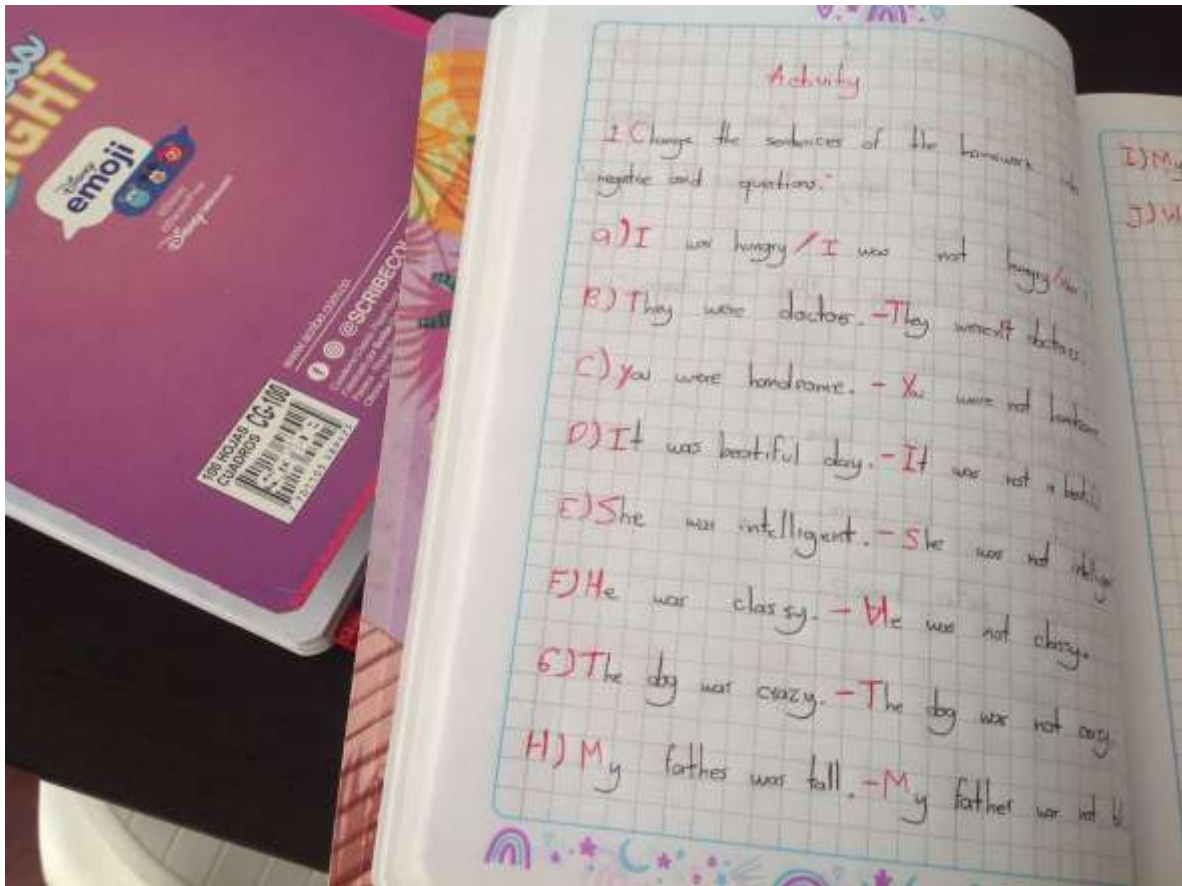 GHT
Disney
emoji
Disney
www.scribe.com.co
@SCRIBECOL
100 HOJAS
CUADROS CG-100
Activity
1 Change the sentences of the homework into
negative and questions.
a) I was hungry / I was not hungry
B) They were doctors. - They weren't doctors.
C) You were handsome. - You were not
D) It was beatiful day. - It was not a
E) She was intelligent. - She was not
F) He was classy. - He was not classy.
G) The dog was crazy. - The dog was not
H) My father was tall. - My father was not
I) My
J) W